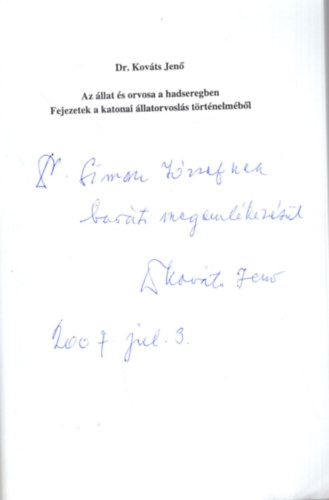 Dr. Kováts Jenő
Az állat és orvosa a hadseregben
Fejezetek a katonai állatorvoslás történelméből
Dr. Simon Józsefnek
baráti megemlékezésül
Dr Kováts Jenő
2007 júl. 3.